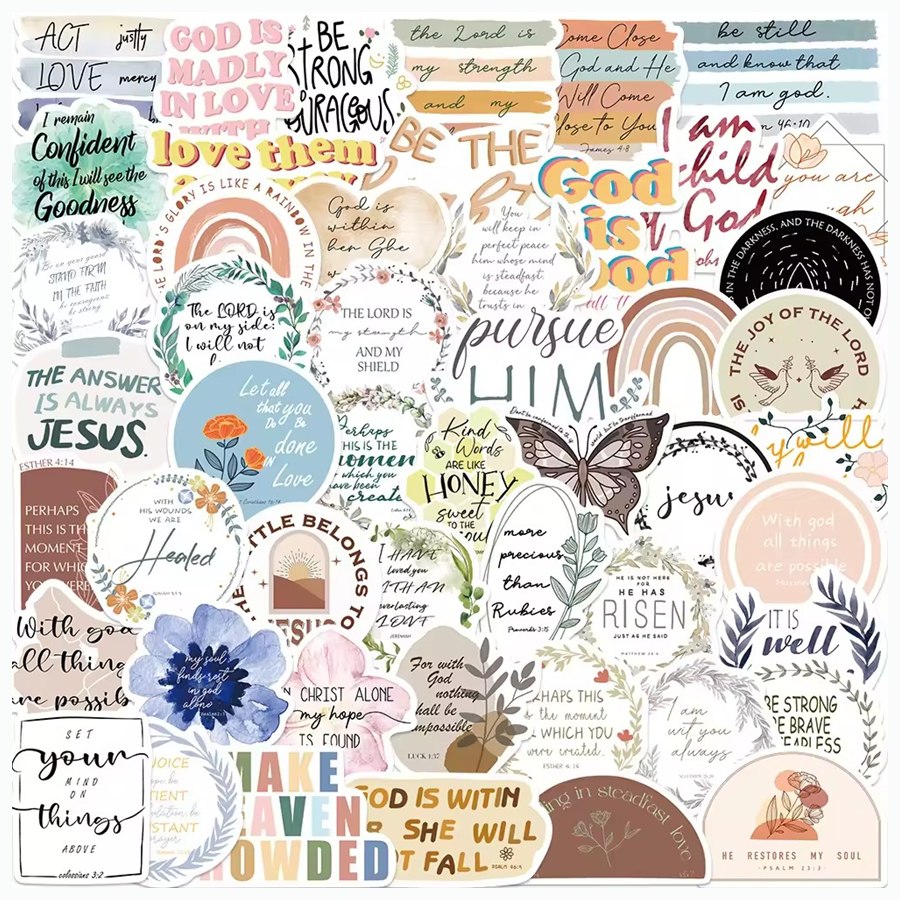 ACT justly
LOVE mercy
GOD IS
MADLY
IN LOVE
WITH
BE
STRONG
COURAGEOUS
the Lord is
my strength
and my
Come Close
God and He
Will Come
Close to You
James 4:8
be still
and know that
I am god.
46:10
I remain
Confident
of this I will see the
Goodness
love them
BE THE
God
is
good
I am
child
God
you are
THE LORD'S GLORY IS LIKE A RAINBOW IN THE
God is
within
her She
You
will keep in
perfect peace
him whose mind
is steadfast,
because he
trusts in
IN THE DARKNESS, AND THE DARKNESS HAS NOT
Be on your guard
STAND FIRM
IN THE FAITH
be courageous
be strong
The LORD is
on my side;
I will not
THE LORD IS
my strength
AND MY
SHIELD
pursue
HIM
THE JOY OF THE LORD
IS
THE ANSWER
IS ALWAYS
JESUS.
Let all
that you
Do Be
done
IN
Love
1 Corinthians 16:14
Perhaps
THIS IS THE
women
which you
have been
create
Kind
Words
ARE LIKE
HONEY
sweet
TO THE
soul
Don't be conformed to this
world but be transformed
jesus
will
ESTHER 4:14
PERHAPS
THIS IS TH
MOMENT
FOR WHICH
YOU WERE
WITH
HIS WOUNDS
WE ARE
Healed
ISAIAH 53:5
LITTLE BELONGS TO
JESUS
I HAVE
loved you
WITH AN
everlasting
LOVE
JEREMIAH
more
precious
than
Rubies
Proverbs 3:15
HE IS NOT HERE
FOR
HE HAS
RISEN
JUST AS HE SAID
MATTHEW 28:6
With god
all things
are possible
IT IS
well
With god
all things
are possib
my soul
finds rest
in god
alone
IN CHRIST ALONE
my hope
IS FOUND
For with
God
nothing
shall be
impossible
LUCK 1:37
PERHAPS THIS
is the moment
FOR WHICH YOU
were created.
ESTHER 4:14
I am
with you
always
BE STRONG
BE BRAVE
FEARLESS
SET
your
MIND
ON
things
ABOVE
colossians 3:2
REJOICE
hope, be
PATIENT
tribulation, be
CONSTANT
prayer
MAKE
HEAVEN
CROWDED
GOD IS WITIN
HER SHE WILL
NOT FALL
PSALM 46:5
ing in steadfast love
HE RESTORES MY SOUL
-PSALM 23:3-